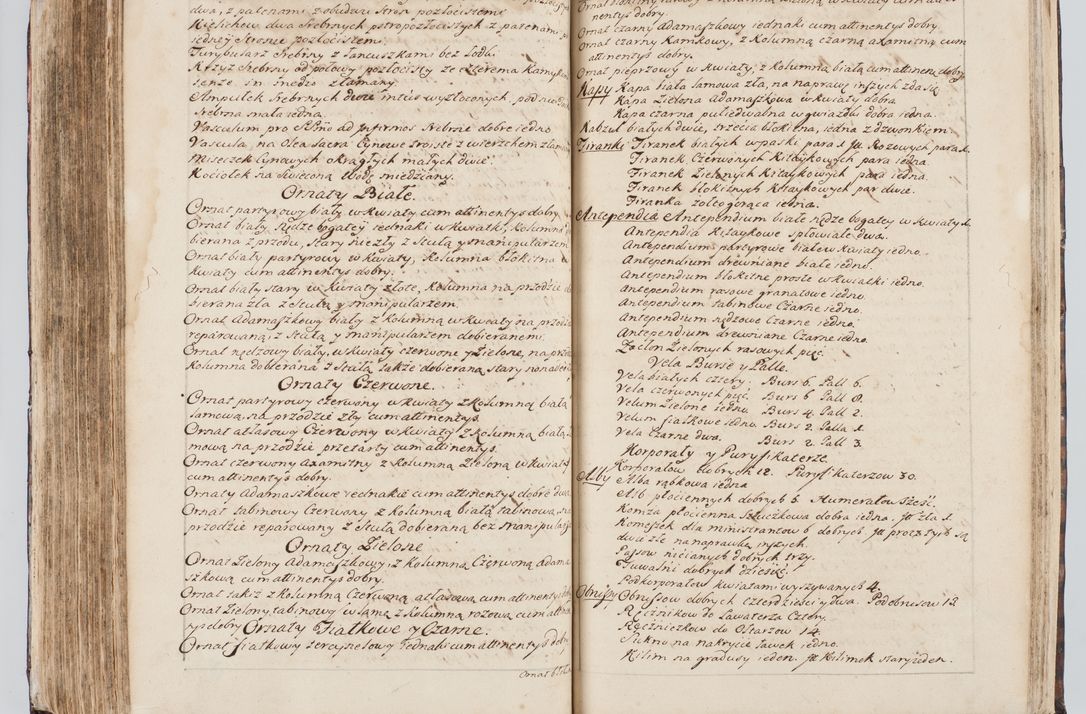 dwa, z patenami z obudwu stron pozłocistemi
Kielichow dwa srebrnych pstropozłocistych z patenami
iedney stronie pozłocistemi.
Turybularz srebrny z łancuszkami bez łodki
Krzyz srebrny od połowy pozłocisty ze czterema kamykami
Ampułek srebrnych dwie intus wyzłoconych, pod niemi
srebrna mała iedna.
Vasculum pro SSmo ad Infirmos srebrne dobre iedno
Vascula, na Olea Sacra Cynowe troiste z wierzchem złamanym
Miseczek Cynowych okrągłych małych dwie.
Kociołek na swięconą wodę miedziany.
Ornaty Białe.
Ornat partyrowy biały w kwiaty cum attinentys dobry
Ornat biały, rądze bogatey iednaki w kwiatki, kolumna
bierana z przodu, stary nie zły z stułą y manipularzem
Ornat biały partyrowy w kwiaty, kolumna błokitna w
kwiaty cum attinentys dobry.
Ornat biały stary w kwiaty złote, kolumna na przodzie do
bierana zła z stułą y manipularzem.
Ornat Adamaszkowy biały z kolumną w kwiaty na przodzie
reparowana, z stułą y manipularzem dobieranemi.
Ornat rądzowy biały, w kwiaty czerwone y zielone, na przodzie
kolumna dobierana z stułą także dobieraną stary
Ornaty Czerwone.
Ornat partyrowy czerwony w kwiaty z kolumną białą
lamową, na przodzie zły cum attinentys.
Ornat atłasowy Czerwony w kwiaty z kolumną białą la
mową na przodzie przetarty cum attinentys.
Ornat czerwony axamitny z kolumną zieloną w kwiaty
cum attinentys dobry.
Ornaty Adamaszkowe iednakie cum attinentys dobre dwa
Ornat tabinowy Czerwony z kolumną białą tabinową, na
przodzie reparowany z stułą dobieraną bez manipularza
Ornaty Zielone
Ornat zielony Adamaszkowy, z kolumną Czerwoną adama
szkową cum attinentys dobry.
Ornat takiż z kolumbną Czerwoną atłasową cum attinentys
Ornat zielony tabinowy w lamę z kolumną rożową cum attinen
tys dobry Ornaty Fiałkowe y Czarne.
Ornat fiałkowy tercynelowy Jednaki cum attinentys dobry
Ornat
nentys dobry.
Ornat czarny Adamaszkowy iednaki cum attinentys dobry
Ornat czarny Kamkowy, z kolumną czarną axamitną cum
attinentys dobry.
Ornat pieprzowy w kwiaty, z kolumną białą cum attinen: dobry
Kapy Kapa biała lamowa zła, na naprawę inszych zda się
Kapa zielona Adamaszkowa w kwiaty dobra
Kapa czarna w gwiazdy dobra iedna.
Kabzul białych dwie, trzecia błokitna, iedna z dzwonkiem
Firanki Firanek białych w paski para 1. It. Rozowych para 1.
Firanek Czerwonych Kitaykowych para iedna.
Firanek zielonych Kitaykowych para iedna.
Firanek błokitnych Kitaykowych par dwie.
Firanka zołtogorąca iedna.
Antependia Antependium białe rądze bogatey w kwiaty 1.
Antependia Kitaykowe spłowiałe dwa.
Antependium partyrowe białe w kwiaty iedno.
Antependium drewniane białe iedno.
Antependium błokitne proste w kwiatki iedno.
Antependium rasowe granatowe iedno.
Antependium tabinowe Czarne iedno.
Antependium rądzowe Czarne iedno.
Antependium drewniane Czarne iedno.
Zasłon zielonych rasowych pięc.
Vela Bursę y Palle.
Vela białych cztery. Burs 6. Pall 6.
Vela czerwonych pięc. Burs 6 Pall 8.
Velum zielone iedno. Burs 4. Pall 2.
Velum fiałkowe iedno Burs 2. Palla 1.
Vela Czarne dwa. Burs 2. Pall 3.
Korporały y Puryfikaterze
Korporałow dobrych 12. Puryfikaterzow 30.
Alby Alba rąbkowa iedna
Alb płociennych dobrych 6. Humerałow sześć.
Komża płocienna sztuczkowa dobra iedna. It zła 1.
Komeszek dla ministrantow 6 dobrych. It procz tych są
dwie złe na naprawkę inszych.
Pasow nicianych dobrych trzy.
Tuwalni dobrych dziesięć
Podkorporałow kwiatami wyszywanych 4.
Obrusy Obrusow dobrych czterdzieści y dwa. Podobrusow 12
Ręcznikow do Lawaterza Cztery.
Ręczniczkow do Ołtarzow 14.
Sukno na nakrycie ławek iedno.
Kilim na gradusy ieden. It Kilimek stary ieden.